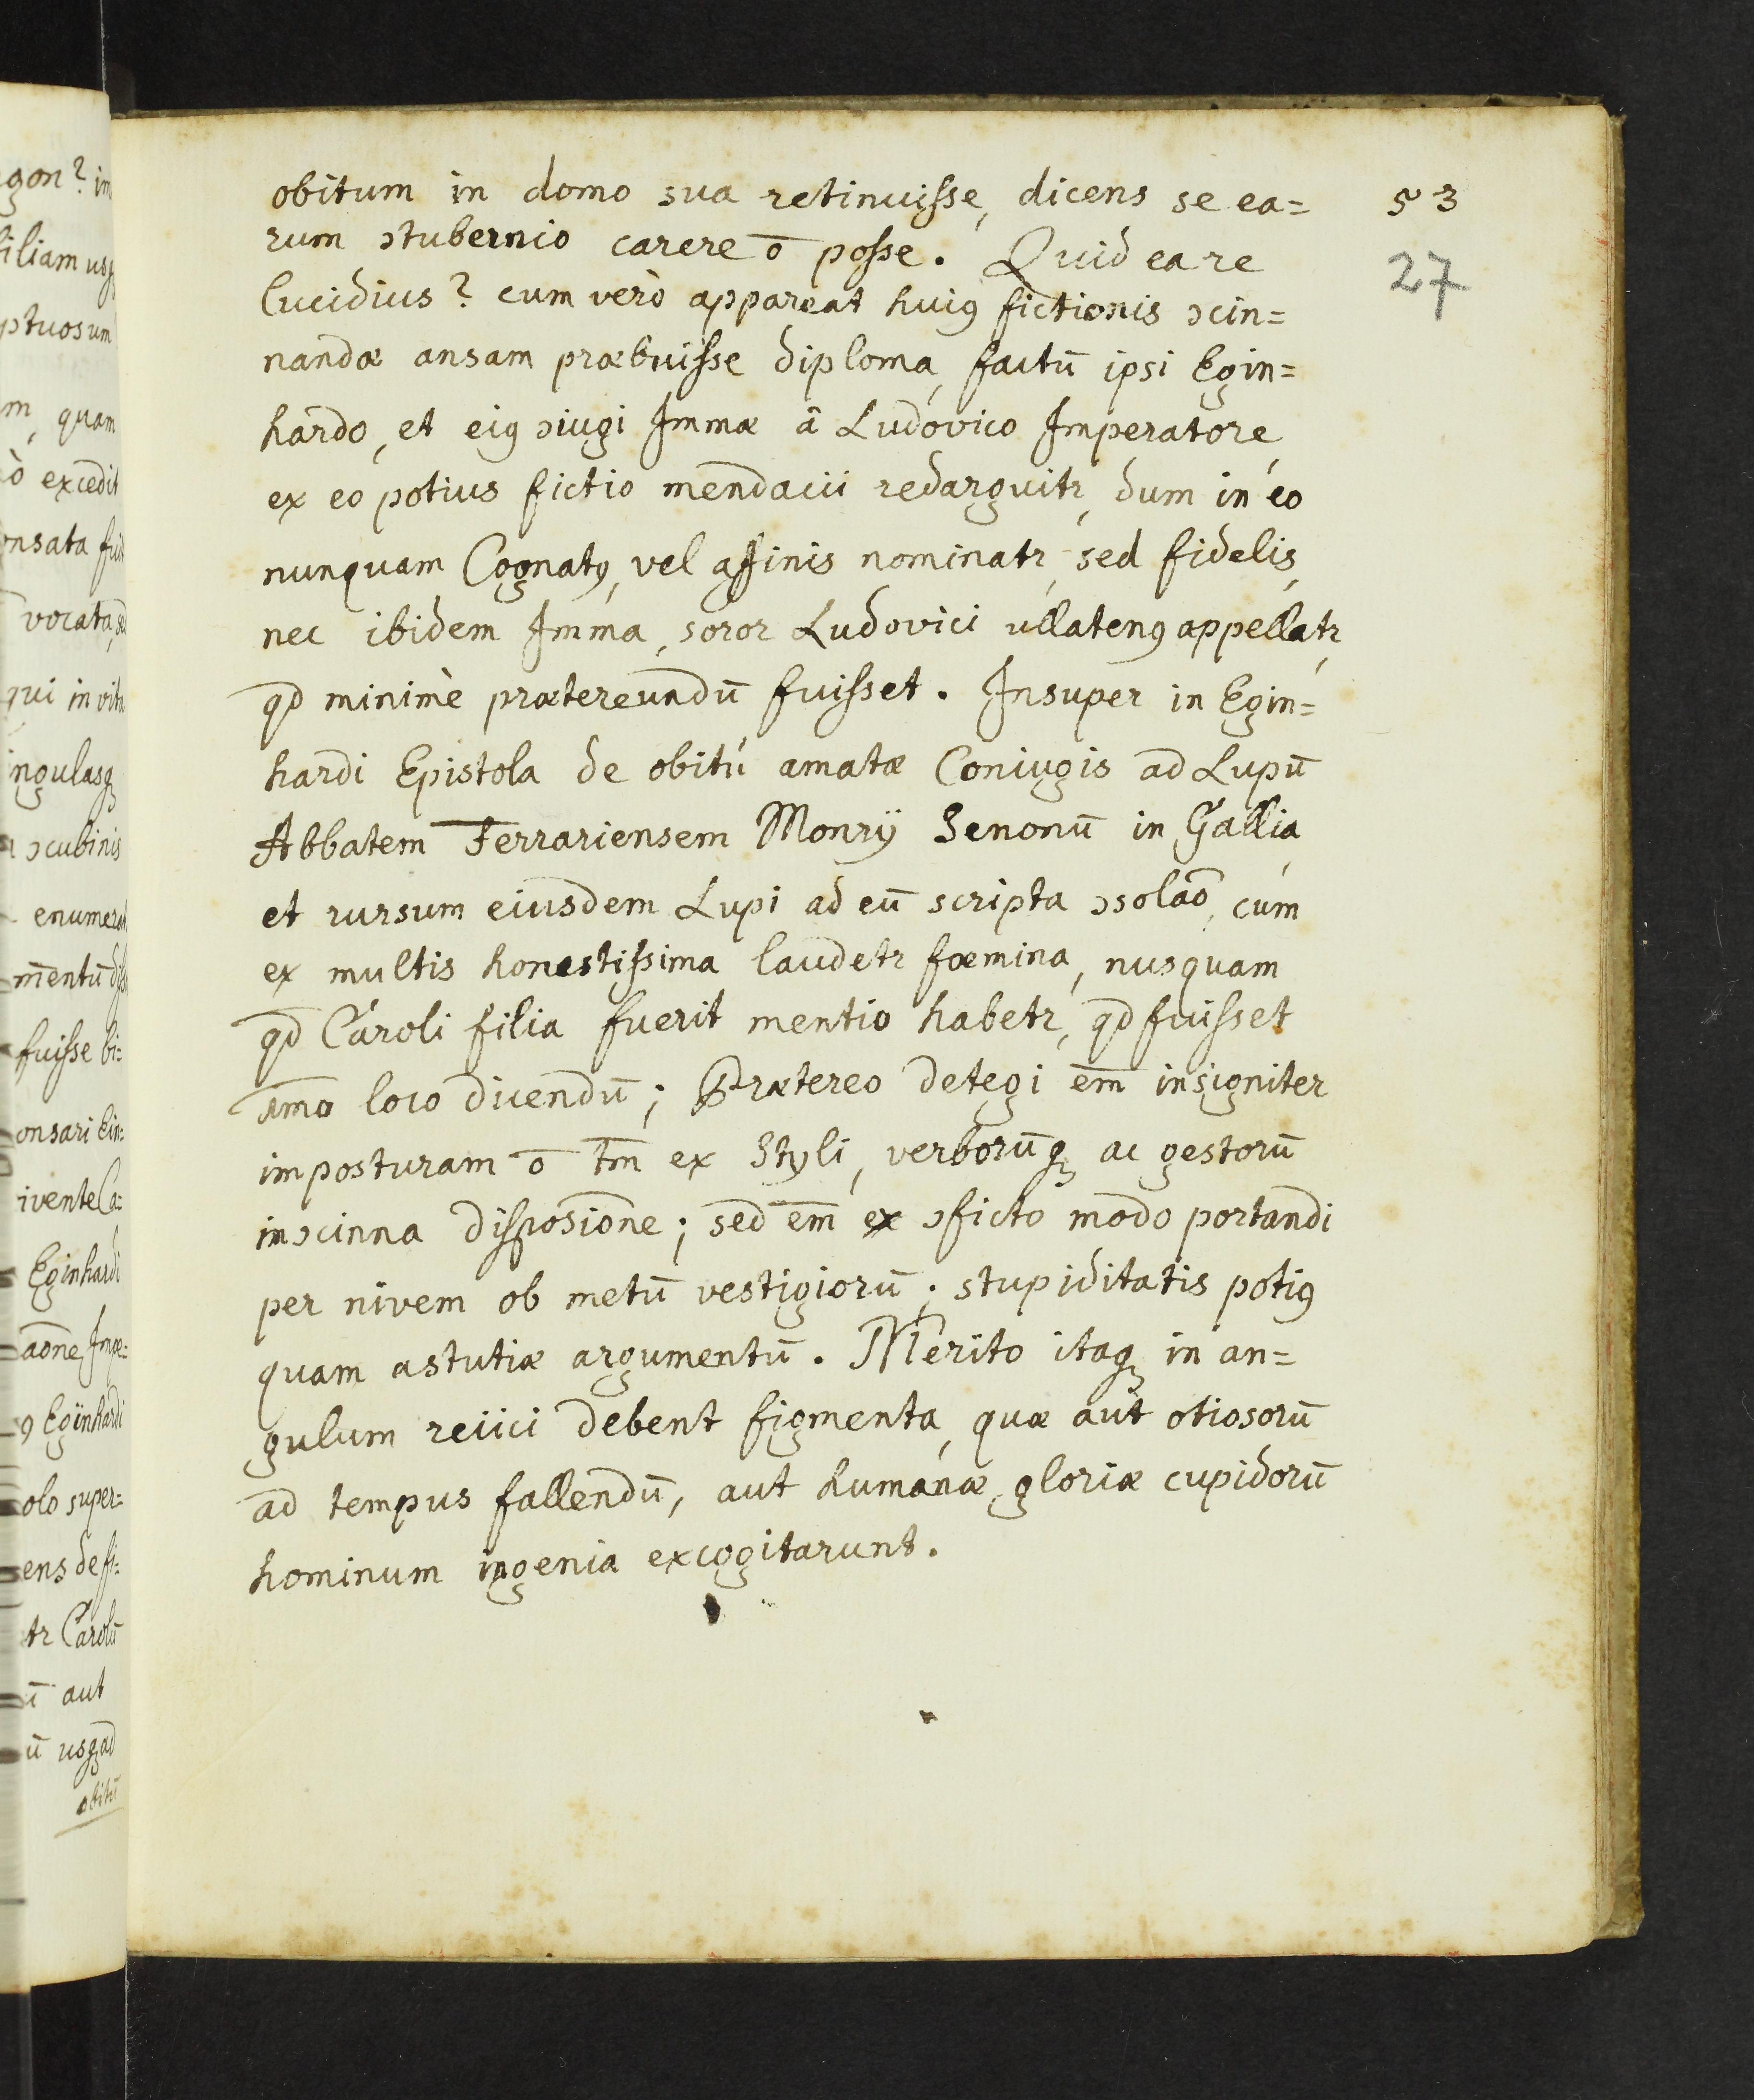 obitum in domo sua retinuiſse, dicens se ea=
rum ɔtubernio carere ō poſse. Quid ea re
lucidius? cum verò appareat huiꝯ fictionis ɔcin=
nandæ ansam præbuiſse diploma, factū ipsi Egin=
hardo, et eiꝯ ɔiugi Immæ â Ludovico Imperatore,
ex eo potius fictio mendacii redarguitr, dum in eo
nunquam Cognatꝯ, vel affinis nominatr, sed fidelis,
nec ibidem Imma, soror Ludovici ullatenꝯ appellatr,
qd minimè prætereundū fuiſset. Insuper in Egin=
hardi Epistola de obitu amatæ Coniugis ad Lupū
Abbatem Ferrariensem Monrÿ Senonū in Gallia,
et rursum eiusdem Lupi ad eū scripta ɔsolaō, cum
ex multis honestiſsima laudetr fœmina, nusquam
qd Caroli filia fuerit mentio habetr, qd fuiſset
loco dicendū; Prætereo detegi em̄ insigniter
imposturam ō tm̄ ex Styli, verborūq ac gestorū
inɔcinna disposione; sed em̄ ex ɔficto modo portandi
per nivem ob metū vestigiorū; stupiditatis potiꝯ
quam astutiæ argumentū. Merito itaq in an=
gulum reiici debent figmenta, quæ aut otiosorū
ad tempus fallendū, aut humanæ gloriæ cupidorū
hominum ingenia excogitarunt.
53
27